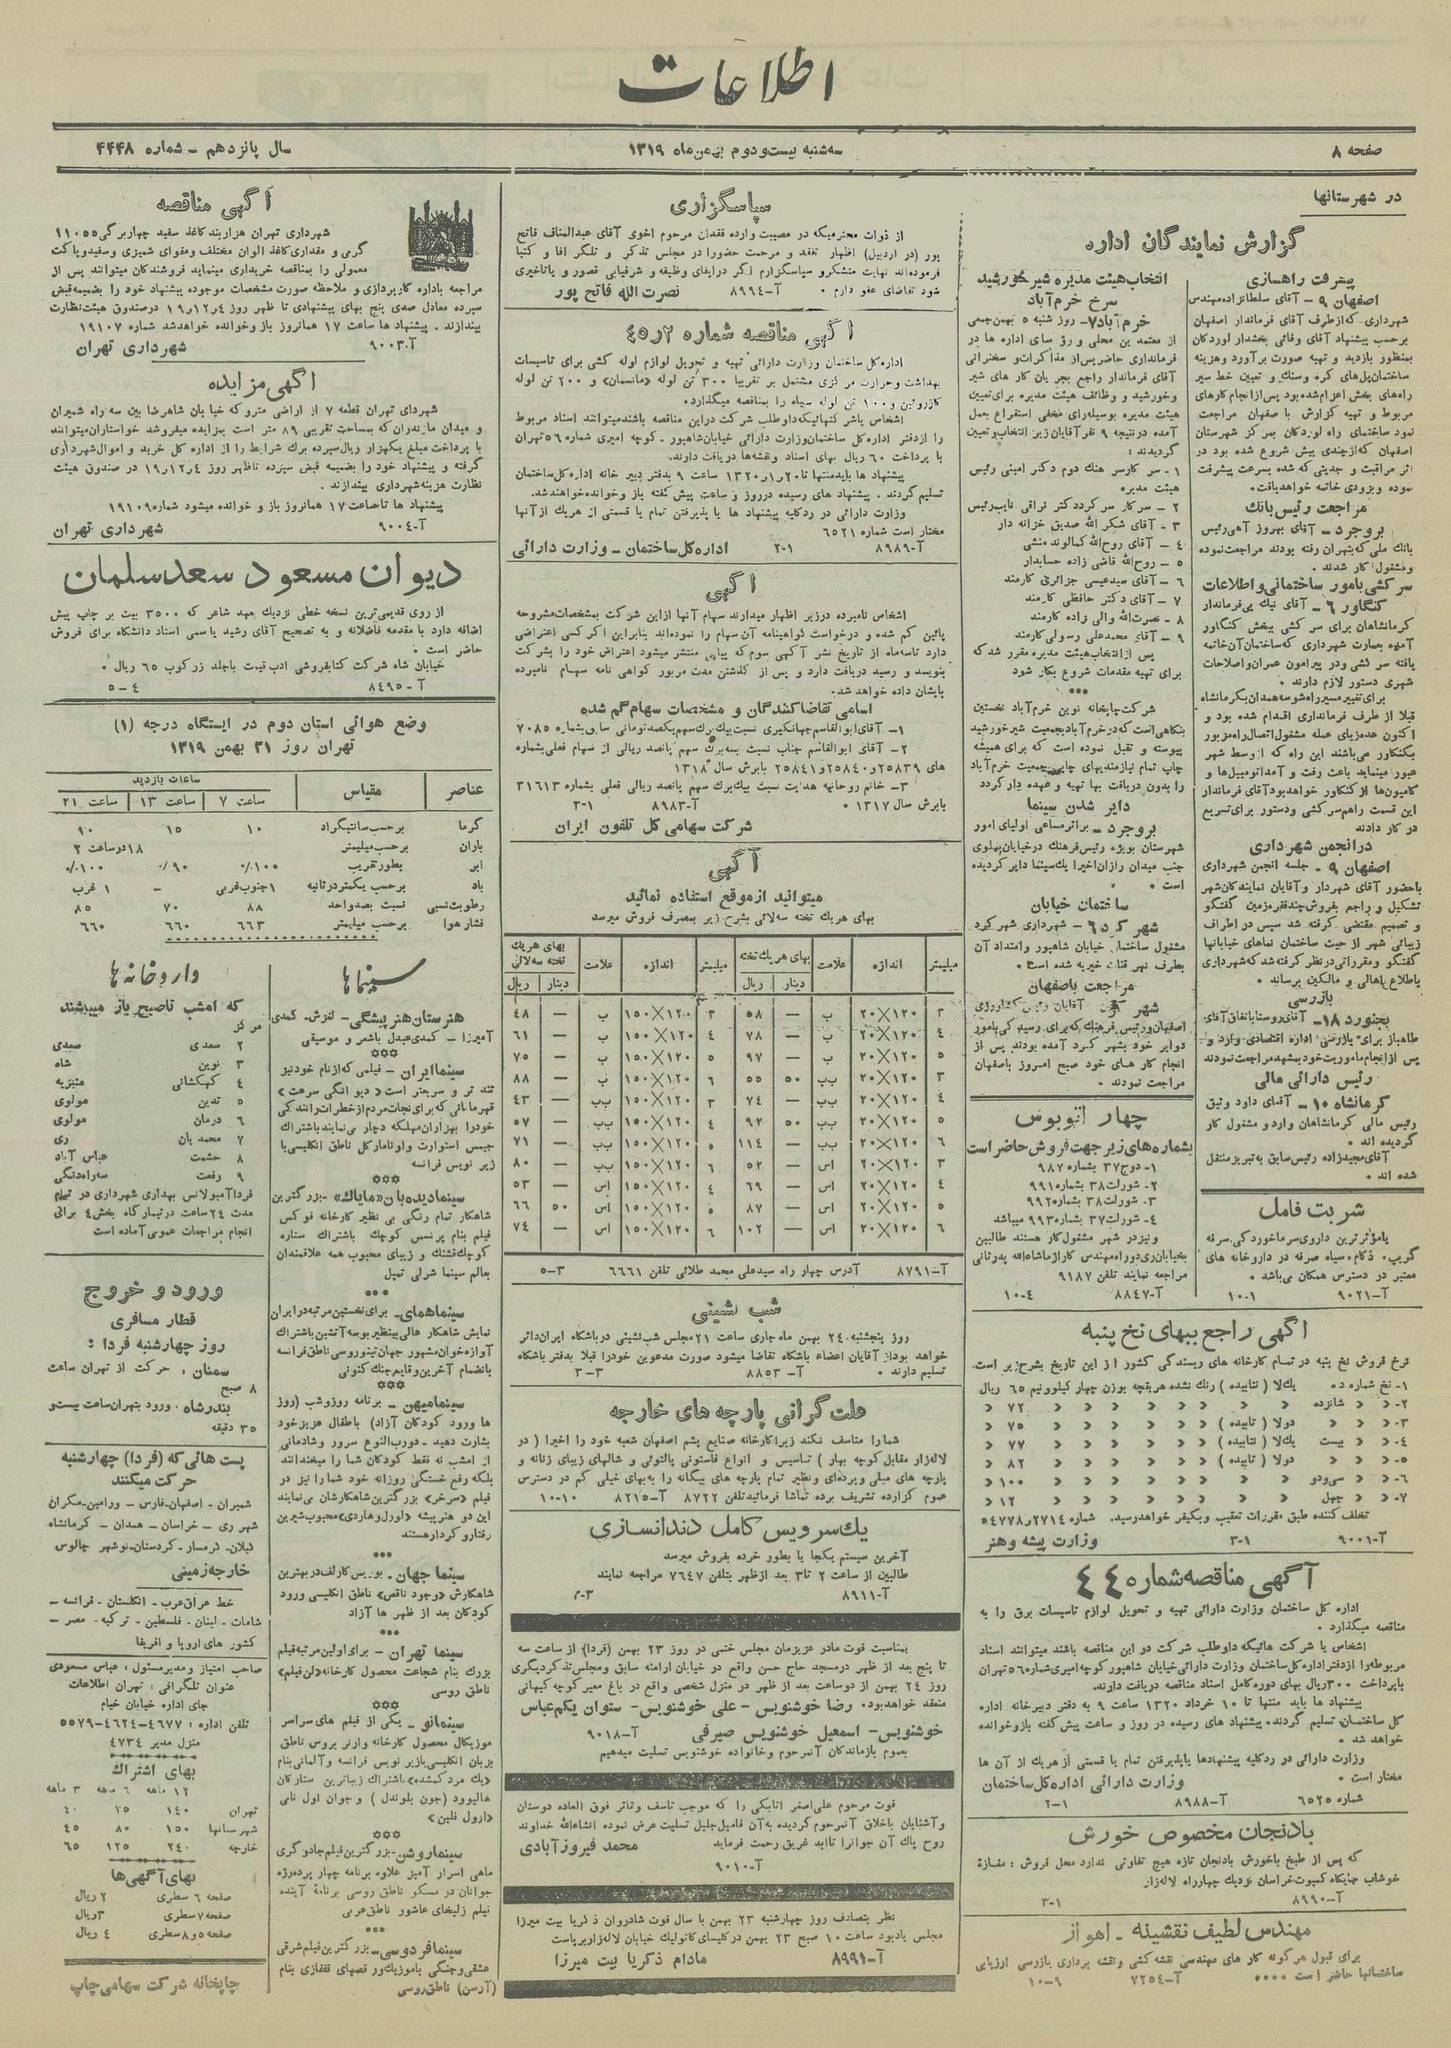 اطلاعات
صفحه ۸
سه‌شنبه بیست و دوم بهمن ماه ۱۳۱۹
سال پانزدهم - شماره ۴۴۴۸
در شهرستانها
گزارش نمایندگان اداره
پیشرفت راهسازی
اصفهان ۹ - آقای سلطانزاده مهندس
شهرداری که از طرف آقای فرماندار اصفهان
برحسب پیشنهاد آقای وفائی بخشدار لوردگان
بمنظور بازدید و تهیه صورت برآورد وهزینه
ساختمان پل‌های کره وسنك و تعیین خط سیر
راه‌های بخش اعزام شده بود پس از انجام کارهای
مربوط و تهیه گزارش با صفهان مراجعت
نمود ساختمان راه لوردگان بمرکز شهرستان
اصفهان که از چندی پیش شروع شده بود در
اثر مراقبت و جدیتی که شده بسرعت پیشرفت
نموده و بزودی خاتمه خواهد یافت.
مراجعت رئیس بانك
بروجرد - آقای بهروز آهی رئیس
بانك ملی که بتهران رفته بودند مراجعت نموده
ومشغول کار شدند.
سرکشی بامور ساختمانی و اطلاعات
کنگاور ۶ - آقای نیك پی فرماندار
کرمانشاهان برای سرکشی ببخش کنگاور
آمده بعمارت شهرداری که ساختمان آن خاتمه
یافته سرکشی ودر پیرامون عمران واصلاحات
شهری دستور لازم دارند.
برای تغییر مسیر راه شوسه همدان بکرمانشاه
قبلا از طرف فرمانداری اقدام شده بود و
اکنون عده‌زیای عمله مشغول اتصال راه مزبور
بکنگاور می‌باشند این راه که از وسط شهر
عبور مینماید باعث رفت و آمد اتومبیل‌ها و
کامیون‌ها از کنگاور خواهد بود آقای فرماندار
این قسمت راهم سرکشی ودستور برای تسریع
در کار دادند
در انجمن شهرداری
اصفهان ۹ - جلسه انجمن شهرداری
باحضور آقای شهردار و آقایان نمایندگان شهر
تشکیل و راجع بفروش چند فقره زمین گفتگو
و تصمیم مقتضی گرفته شد سپس در اطراف
زیبائی شهر از حیث ساختمان نماهای خیابانها
گفتگو و مقرراتی در نظر گرفته شد که شهرداری
باطلاع اهالی و مالکین برساند.
بازرسی
بجنورد ۱۸ - آقای روستا باتفاق آقای
طاهباز برای بازرسی اداره اقتصادی وارد و
پس از انجام ماموریت خود بمشهد مراجعت نمودند
رئیس دارائی مالی
کرمانشاه ۱۰ - آقای داود وثیق
رئیس مالی کرمانشاهان وارد و مشغول کار
گردیده اند.
آقای مجیدزاده رئیس سابق به تبریز منتقل
شده اند.
شربت فامل
یا مؤثرترین داروی سرماخوردگی، سرفه
گریپ، ذکام، سیاه صرفه در داروخانه های
معتبر در دسترس همگان می‌باشد.
آ-۹۰۲۱ ۱-۱۰
انتخاب هیئت مدیره شیر خورشید
سرخ خرم آباد
خرم آباد ۷ - روز شنبه ۵ بهمن جمعی
از معتمدین محلی و رؤسای اداره ها در
فرمانداری حاضر پس از مذاکرات و سخنرانی
آقای فرماندار راجع بجریان کارهای شیر
وخورشید و وظائف هیئت مدیره برای تعیین
هیئت مدیره بوسیله رای مخفی استقراع بعمل
آمده در نتیجه ۹ نفر آقایان زیر انتخاب وتعیین
گردیدند:
۱- سرکار سرهنك دوم دکتر امینی رئیس
هیئت مدیره
۲ - سرکار سرگرد دکتر تراقی نایب رئیس
۳ - آقای شکر الله صدیق خزانه دار
۴ - آقای روح‌الله کمالوند منشی
۵ - روح‌الله قاضی زاده حسابدار
۶ - آقای سیدعیسی جزائری کارمند
۷ - آقای دکتر حافظی کارمند
۸ - نصرت‌الله والی زاده کارمند
۹ - آقای محمدعلی رسولی کارمند
پس از انتخاب هیئت مدیره مقرر شد که
برای تهیه مقدمات شروع بکار شود
***
شرکت چاپخانه نوین خرم آباد نخستین
بنگاهی است که در خرم آباد بجمعیت شیر خورشید
پیوسته و تقبل نموده است که برای همیشه
چاپ تمام نیازمندیهای چاپی جمعیت خرم آباد
را بدون دریافت بها تهیه و عهده دار گردد
دایر شدن سینما
بروجرد - براثر مساعی اولیای امور
شهرستان بویژه رئیس فرهنك درخیابان پهلوی
جنب میدان رازان اخیرا یك سینما دایر گردیده
است.
ساختمان خیابان
شهر کرد ۶ - شهرداری شهر کرد
مشغول ساختمان خیابان شاهپور وامتداد آن
بطرف نهر قنات خیریه شده است.
مراجعت باصفهان
شهر کرد - آقایان رئیس کشاورزی
اصفهان ورئیس فرهنك که برای رسیدگی بامور
دوایر خود بشهر کرد آمده بودند پس از
انجام کار های خود صبح امروز باصفهان
مراجعت نمودند.
چهار اتوبوس
بشماره‌های زیر جهت فروش حاضر است
۱- دوج ۳۷ بشماره ۹۸۷
۲- شورات ۳۸ بشماره ۹۹۱
۳- شورات ۳۸ بشماره ۹۹۲
۴- شورات ۳۷ بشماره ۹۹۳ میباشد
ونیز در شهر مشغول کار هستند طالبین
بخیابان ری دوراه مهندس گاراژ ماشاءالله پدرثانی
مراجعه نمایند تلفن ۹۱۸۷
آ-۸۸۴۷ ۴-۱۰
آگهی راجع ببهای نخ پنبه
نرخ فروش نخ پنبه در تمام کارخانه های ریسندگی کشور از این تاریخ بشرح زیر است.
۱- نخ شماره ده یك لا (نتابیده) رنك نشده هربقچه بوزن چهار کیلوونیم ۶۵ ریال
۲- « « شانزده « « « « « « « ۷۲ «
۳- « « « دولا (تابیده) « « « « « ۷۵ «
۴- « « بیست یك لا (نتابیده) « « « « « ۷۷ «
۵- « « « دولا (تابیده) « « « « « ۸۲ «
۶- « « سی‌ودو « « « « « « « ۱۰۰ «
۷- « « چهل « « « « « « « ۱۲ «
تخلف کننده طبق مقررات تعقیب وبکیفر خواهد رسید. شماره ۵۴۷۷۸ر۲۷۱۴
آ-۹۰۰۱ ۱-۳ وزارت پیشه و هنر
آگهی مناقصه شماره ۴۴
اداره کل ساختمان وزارت دارائی تهیه و تحویل لوازم تاسیسات برق را به
مناقصه میگذارد.
اشخاص یا شرکت هائیکه داوطلب شرکت در این مناقصه باشند میتوانند اسناد
مربوطه را از دفتر اداره کل ساختمان وزارت دارائی خیابان شاهپور کوچه امیری شماره ۵۶ تهران
با پرداخت ۳۰۰ ریال بهای دوره کامل اسناد مناقصه دریافت دارند.
پیشنهاد ها باید منتها تا ۱۰ خرداد ۱۳۲۰ ساعت ۹ به دفتر دبیرخانه اداره
کل ساختمان تسلیم گردند. پیشنهاد های رسیده در روز و ساعت پیش گفته باز وخوانده
خواهد شد.
وزارت دارائی در ردکلیه پیشنهادها یاپذیرفتن تمام یا قسمتی از هریك از آن ها
مختار است. وزارت دارائی اداره کل ساختمان
شماره ۶۵۲۵ آ-۸۹۸۸ ۱-۲
بادنجان مخصوص خورش
که پس از طبخ باخورش بادنجان تازه هیچ تفاوتی ندارد محل فروش: مغازه
خوشاب جایگاه کمپوت خراسان نزدیك چهارراه لاله‌زار
آ-۸۹۹۰ ۱-۳
مهندس لطیف نقشینه - اهواز
برای قبول هرگونه کار های مهندسی نقشه کشی ونقشه برداری بازرسی ارزیابی
ساختمانها حاضر است ۰۰۰۰ آ-۷۲۵۴ ۹-۱۰
سپاسگزاری
از ذوات محترمیکه در مصیبت وارده فقدان مرحوم اخوی آقای عبدالمناف فاتح
پور (در اردبیل) اظهار تفقد و مرحمت حضورا در مجلس تذکر و تلگرافا و کتبا
فرموده‌اند نهایت متشکرو سپاسگزارم اگر درایفای وظیفه و شرفیابی قصور و یاتاخیری
شود تقاضای عفو دارم. آ-۸۹۹۴ نصرت الله فاتح پور
آگهی مناقصه شماره ۲ر۴۵
اداره کل ساختمان وزارت دارائی تهیه و تحویل لوازم لوله کشی برای تاسیسات
بهداشت وحرارت مرکزی مشتمل بر تقریبا ۳۰۰ تن لوله «مانسمان» و ۲۰۰ تن لوله
گازروئین و ۱۰۰ تن لوله سیاه را بمناقصه میگذارد.
اشخاص یاشرکتهائیکه داوطلب شرکت دراین مناقصه باشند میتوانند اسناد مربوط
را ازدفتر اداره کل ساختمان وزارت دارائی خیابان شاهپور - کوچه امیری شماره ۵۶ تهران
با پرداخت ۶۰ ریال بهای اسناد ونقشه‌ها دریافت دارند.
پیشنهاد ها باید منتها تا ۲۰ر۱ر۱۳۲۰ ساعت ۹ بدفتر دبیر خانه اداره کل ساختمان
تسلیم گردند. پیشنهاد های رسیده درروز و ساعت پیش گفته باز وخوانده خواهند شد.
وزارت دارائی در ردکلیه پیشنهاد ها یا پذیرفتن تمام یا قسمتی از هریك از آنها
مختار است شماره ۶۵۲۱
آ-۸۹۸۹ ۱-۲ اداره کل ساختمان - وزارت دارائی
آگهی
اشخاص نامبرده درزیر اظهار میدارند سهام آنها از این شرکت بمشخصات مشروحه
پائین گم شده و درخواست گواهینامه آن سهام را نموده‌اند بنابراین اگر کسی اعتراضی
دارد تا سه ماه از تاریخ نشر آگهی سوم که پیاپی منتشر میشود اعتراض خود را بشرکت
بنویسد و رسید دریافت دارد و پس از گذشتن مدت مزبور گواهی نامه سهام نامبرده
بایشان داده خواهد شد.
اسامی تقاضاکنندگان و مشخصات سهام گم شده
۱- آقای ابوالقاسم جهانگیری نسبت بیك برك سهم یکصد تومانی سابق بشماره ۷۰۸۵
۲- آقای ابوالقاسم جناب نسبت بسه برك سهم پانصد ریالی از سهام فعلی بشماره
های ۲۵۸۳۹و۲۵۸۴۰و۲۵۸۴۱ بابرش سال ۱۳۱۸
۳- خانم روحانیه هدایت نسبت بیك برك سهم پانصد ریالی فعلی بشماره ۳۱۶۱۳
بابرش سال ۱۳۱۷. آ-۸۹۸۳ ۱-۳
شرکت سهامی کل تلفون ایران
آگهی
میتوانید ازموقع استفاده نمائید
بهای هریك تخته سه‌لائی بشرح زیر بمصرف فروش میرسد
میلیمتر اندازه علامت بهای هریك تخته میلیمتر اندازه علامت بهای هریك تخته سه‌لائی
دینار ریال دینار ریال
۳ ۱۲۰×۲۰ ب — ۵۸ ۳ ۱۲۰×۱۵۰ ب — ۴۸
۴ ۱۲۰×۲۰ ب — ۷۸ ۴ ۱۲۰×۱۵۰ ب — ۶۱
۵ ۱۲۰×۲۰ ب — ۹۷ ۵ ۱۲۰×۱۵۰ ب — ۷۵
۳ ۱۲۰×۲۰ ب‌ب ۵۰ ۵۵ ۶ ۱۲۰×۱۵۰ ب — ۸۸
۴ ۱۲۰×۲۰ ب‌ب — ۷۴ ۳ ۱۲۰×۱۵۰ ب‌ب — ۴۳
۵ ۱۲۰×۲۰ ب‌ب ۵۰ ۹۲ ۴ ۱۲۰×۱۵۰ ب‌ب — ۵۷
۶ ۱۲۰×۲۰ ب‌ب — ۱۱۴ ۵ ۱۲۰×۱۵۰ ب‌ب — ۷۱
۳ ۱۲۰×۲۰ اس — ۵۲ ۶ ۱۲۰×۱۵۰ ب‌ب — ۸۰
۴ ۱۲۰×۲۰ اس — ۶۹ ۴ ۱۲۰×۱۵۰ اس — ۵۳
۵ ۱۲۰×۲۰ اس — ۸۷ ۵ ۱۲۰×۱۵۰ اس ۵۰ ۶۶
۶ ۱۲۰×۲۰ اس — ۱۰۲ ۶ ۱۲۰×۱۵۰ اس — ۷۴
آ-۸۷۹۱ آدرس چهار راه سیدعلی محمد طلائی تلفن ۶۶۶۱ ۳-۵
شب نشینی
روز پنجشنبه ۲۴ بهمن ماه جاری ساعت ۲۱ مجلس شب نشینی درباشگاه ایران دائر
خواهد بود از آقایان اعضاء باشگاه تقاضا میشود صورت مدعوین خودرا قبلا بدفتر باشگاه
تسلیم دارند. آ-۸۸۵۳ ۳-۳
علت گرانی پارچه های خارجه
شمارا متاسف نکند زیرا کارخانه صنایع پشم اصفهان شعبه خود را اخیرا (در
لاله‌زار مقابل کوچه بهار) تاسیس و انواع فاستونی پالتوئی و شالهای زیبای زنانه و
پارچه های مبلی و پرده‌ای ونظیر تمام پارچه های بیگانه را به بهای خیلی کم در دسترس
عموم گزارده تشریف برده تماشا فرمائید تلفن ۸۷۲۲ آ-۸۲۱۵ ۱۰-۱۰
یك سرویس کامل دندانسازی
آخرین سیستم یکجا یا بطور خرده بفروش میرسد
طالبین از ساعت ۲ تا ۳ بعد ازظهر بتلفن ۷۶۴۷ مراجعه نمایند
آ-۸۹۱۱ ۳-م
بمناسبت فوت مادر عزیزمان مجلس ختمی در روز ۲۳ بهمن (فردا) از ساعت سه
تا پنج بعد از ظهر درمسجد حاج حسن واقع در خیابان ارامنه سابق ومجلس تذکر دیگری
روز ۲۴ بهمن از دوساعت بعد از ظهر در منزل شخصی واقع در باغ معیر کوچه کیهانی
منعقد خواهدبود. رضا خوشنویس - علی خوشنویس - ستوان یکم عباس
خوشنویس - اسمعیل خوشنویس صیرفی آ-۹۰۱۸
بعموم بازماندگان آنمرحوم وخانواده خوشنویس تسلیت میدهیم
فوت مرحوم علی‌اصغر اتابکی را که موجب تاسف وتاثر فوق العاده دوستان
وآشنایان باخلاق آنمرحوم گردیده به آن فامیل جلیل تسلیت عرض نموده انشاءالله خداوند
روح پاك آن جوانرا تاابد غریق رحمت فرماید محمد فیروزآبادی
آ-۹۰۱۰
نظر بتصادف روز چهارشنبه ۲۳ بهمن با سال فوت شادروان ذکریا بیت میرزا
مجلس یادبود ساعت ۱۰ صبح ۲۳ بهمن درکلیسای کاتولیك خیابان لاله‌زار برپاست
آ-۸۹۹۱ مادام ذکریا بیت میرزا
آگهی مناقصه
شهرداری تهران هزاربند کاغذ سفید چهاربرگی ۵۵-۱۱
گرمی و مقداری کاغذ الوان مختلف ومقوای شمیزی وسفید وپاکت
معمولی را بمناقصه خریداری مینماید فروشندگان میتوانند پس از
مراجعه باداره کارپردازی و ملاحظه صورت مشخصات موجوده پیشنهاد خود را بضمیمه قبض
سپرده معادل صدی پنج بهای پیشنهادی تا ظهر روز ۴ر۱۲ر۱۹ درصندوق هیئت نظارت
بیندازند. پیشنهاد ها ساعت ۱۷ همانروز باز وخوانده خواهد شد شماره ۱۹۱۰۷
آ-۹۰۰۳ شهرداری تهران
آگهی مزایده
شهردای تهران قطعه ۷ از اراضی متروکه خیابان شاهرضا بین سه راه شمیران
و میدان مازندران که بمساحت تقریبی ۸۹ متر است بمزایده میفروشد خواستاران میتوانند
با پرداخت مبلغ یکهزار ریال سپرده برك شرایط را از اداره کل خرید و اموال شهرداری
گرفته و پیشنهاد خود را بضمیمه قبض سپرده تاظهر روز ۴ر۱۲ر۱۹ در صندوق هیئت
نظارت هزینه شهرداری بیندازند.
پیشنهاد ها تاساعت ۱۷ همانروز باز و خوانده میشود شماره ۱۹۱۰۹
آ-۹۰۰۴ شهرداری تهران
دیوان مسعود سعد سلمان
از روی قدیمی‌ترین نسخه خطی نزدیك بعهد شاعر که ۳۵۰۰ بیت بر چاپ پیش
اضافه دارد با مقدمه فاضلانه و به تصحیح آقای رشید یاسمی استاد دانشگاه برای فروش
حاضر است.
خیابان شاه شرکت کتابفروشی ادب قیمت باجلد زرکوب ۶۵ ریال.
آ-۸۴۹۵ ۴-۵
وضع هوائی استان دوم در ایستگاه درجه (۱)
تهران روز ۲۱ بهمن ۱۳۱۹
عناصر مقیاس ساعات بازدید
ساعت ۷ ساعت ۱۳ ساعت ۲۱
گرما برحسب سانتیگراد ۱۰ ۱۵ ۹۰
باران برحسب میلیمتر ۱۸ درساعت ۲
ابر بطور تقریب ۱۰۰٪ ۹۰٪ ۱۰۰٪
باد برحسب یکمتردرثانیه ۱ جنوب غربی — ۱ غرب
رطوبت نسبی نسبت بصدواحد ۸۸ ۷۰ ۸۵
فشار هوا برحسب میلیمتر ۶۶۳ ۶۶۰ ۶۶۰
سینماها
هنرستان هنرپیشگی - لغزش - کمدی
آمیرزا - کمدی عبدل باشعر و موسیقی
***
سینما ایران - فیلمی که از نام خود نیز
تند تر و سریعتر است «دیوانگی سرعت»
قهرمانانی که برای نجات مردم از خطرات رانندگی
خودرا بهزاران مهلکه دچار می نمایند باشتراك
جیمس استوارت واونامارکل ناطق انگلیسی با
زیر نویس فرانسه
***
سینما دیده‌بان «مایاك» - بزرگترین
شاهکار تمام رنگی بی نظیر کارخانه فوکس
فیلم بنام پرنسس کوچك باشتراك ستاره
کوچك قشنك و زیبای محبوب همه علاقمندان
بعالم سینما شرلی تمپل
***
سینما همای - برای نخستین مرتبه در ایران
نمایش شاهکار عالی بینظیر بوسه آتشین باشتراك
آوازه خوان مشهور جهان تینو روسی ناطق فرانسه
بانضمام آخرین وقایع جنك کنونی
***
سینما میهن - برنامه روزوشب (روز
ها ورود کودکان آزاد) باطفال عزیز خود
بشارت دهید - دورب‌النوع سرور وشادمانی
از امشب نه فقط کودکان شما را میخندانند
بلکه رفع خستگی روزانه خود شما را نیز در
فیلم «سرخر» بزرگترین شاهکارشان می نمایند
این دو هنرپیشه «لورل و هاردی» محبوب شیرین
رفتارو کردار هستند
***
سینما جهان - بوریس کارلف در بهترین
شاهکارش «وجود ناقص» ناطق انگلیسی ورود
کودکان بعد از ظهر ها آزاد
سینما تهران - برای اولین مرتبه فیلم
بزرك بنام شجاعت محصول کارخانه «لن فیلم»
ناطق روسی
***
سینما نو - یکی از فیلم های سراسر
موزیکال محصول کارخانه وارنر بروس ناطق
بزبان انگلیسی بازیر نویس فرانسه وآلمانی بنام
«یك مرد گمشده» باشتراك زیباترین ستارگان
هالیوود (جون بلوندل) و جوان اول نامی
«ارول فلین»
***
سینما روشن - بزرگترین فیلم جادوگری
ماهی اسرار آمیز علاوه برنامه چهار پرده‌وژه
جوانان در مسکو ناطق روسی برنامه آینده
فیلم زلیخای عاشور ناطق عربی
***
سینما فردوسی - بزرگترین فیلم شرقی
عشقی وجنگی باموزیك و رقصهای قفقازی بنام
(آرسن) ناطق روسی
داروخانه ها
که امشب تاصبح باز میباشند
مرکز
۲ سعدی سعدی
۳ نوین شاه
۴ کهکشانی منیریه
۵ تدین مولوی
۶ درمان مولوی
۷ محمدیان ری
۸ حشمت عباس آباد
۹ رفعت سه‌راه دنگی
فردا آمبولانس بهداری شهرداری در تمام
مدت ۲۴ ساعت درتیمارگاه بخش ۴ برای
انجام مراجعات عمومی آماده است
ورود و خروج
قطار مسافری
روز چهارشنبه فردا:
سمنان: حرکت از تهران ساعت
۸ صبح
بندرشاه - ورود بتهران ساعت بیست و
۳۵ دقیقه
پست هائی که (فردا) چهارشنبه
حرکت میکنند
شمیران - اصفهان - فارس - ورامین - مکران
شهر ری - خراسان - همدان - کرمانشاه
گیلان - گرمسار - کردستان - نوشهر چالوس
خارجه زمینی
خط عراق عرب - انگلستان - فرانسه -
شامات - لبنان - فلسطین - ترکیه - مصر -
کشور های اروپا و افریقا
صاحب امتیاز ومدیر مسئول: عباس مسعودی
عنوان تلگرافی: تهران اطلاعات
جای اداره خیابان خیام
تلفن اداره: ۴۶۷۷-۴۶۲۴-۵۵۷۹
منزل مدیر ۴۷۳۴
بهای اشتراك
۱۲ ماهه ۶ ماهه ۳ ماهه
تهران ۱۴۰ ۷۵ ۴۰
شهرستانها ۱۵۰ ۸۰ ۴۵
خارجه ۲۴۰ ۱۲۵ ۶۵
بهای آگهی‌ها
صفحه ۶ سطری ۲ ریال
صفحه ۷ سطری ۳ ریال
صفحه ۵ و ۸ سطری ۴ ریال
چاپخانه شرکت سهامی چاپ